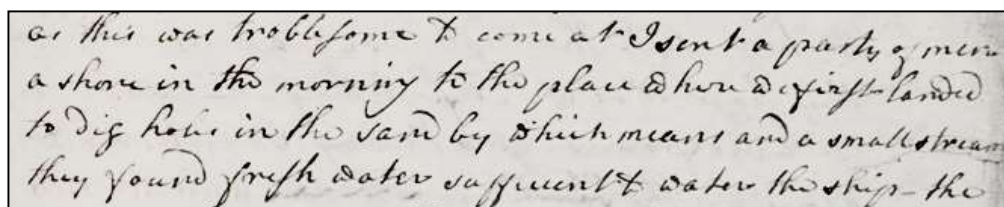 as this was troblesome to come at I sent a party of men
a shore in the morning to the place where we first landed
to dig holes in the sand by which means and a small stream
they found fresh water sufficient to water the ship - the